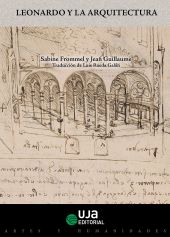 LEONARDO Y LA ARQUITECTURA
Sabine Frommel y Jean Guillaume
Traducción de Luis Rueda Galán
UJA
EDITORIAL
ARTES Y HUMANIDADES